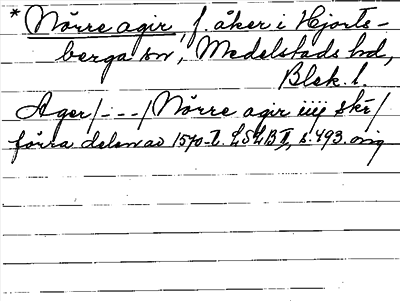 * Nörre agir, f. åker i Hjorts-
berga sn, Medelstads hd,
Blek. l.
Ager/---/ Nörre agir iiij skr/
förra delen av 1570-t. LSLB II, s. 493. orig